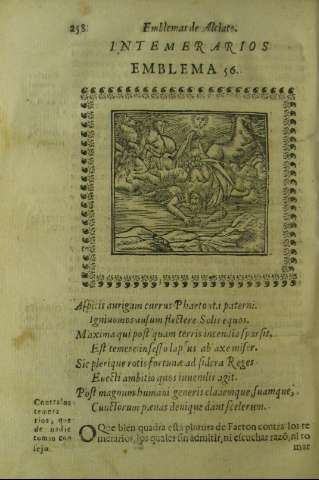 258 Emblemas de Alciato.
IN TEMERARIOS
EMBLEMA 56.
Aspicis aurigam currus Phaetonta paterni.
Igniuomos ausum flectere Solis equos.
Maxima qui postquam terris incendia sparsit,
Est temere insesso lapsus ab axe miser.
Sic plerique rotis fortunæ ad sidera Reges
Euecti ambitio quos iuuenilis agit.
Post magnum humani generis clademque suamque,
Cunctorum pænas denique dant scelerum.
Contra los
temera
rios, que
de nadie
toman con
sejo.
O Que bien quadra esta pintura de Faeton contra los te
merarios, los quales sin admitir, ni escuchar razõ, ni to
mar